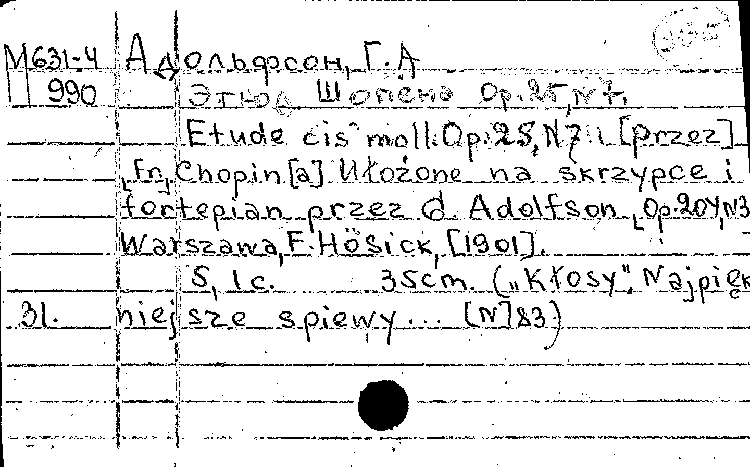 М631-4 Адольфсон, Г. А
990 Этюд Шопена Op. 25, N 7.
Etude cis moll. Op. 25, N 7. [przez]
Fr. Chopin[a] Ułożone na skrzypce i
fortepian przez G. Adolfson, Op. 204, N3
Warszawa, F. Hösick, [1901].
5, 1 c. 35 cm. („Kłosy". Najpięk
31. niejsze spiewy... [N] 83)